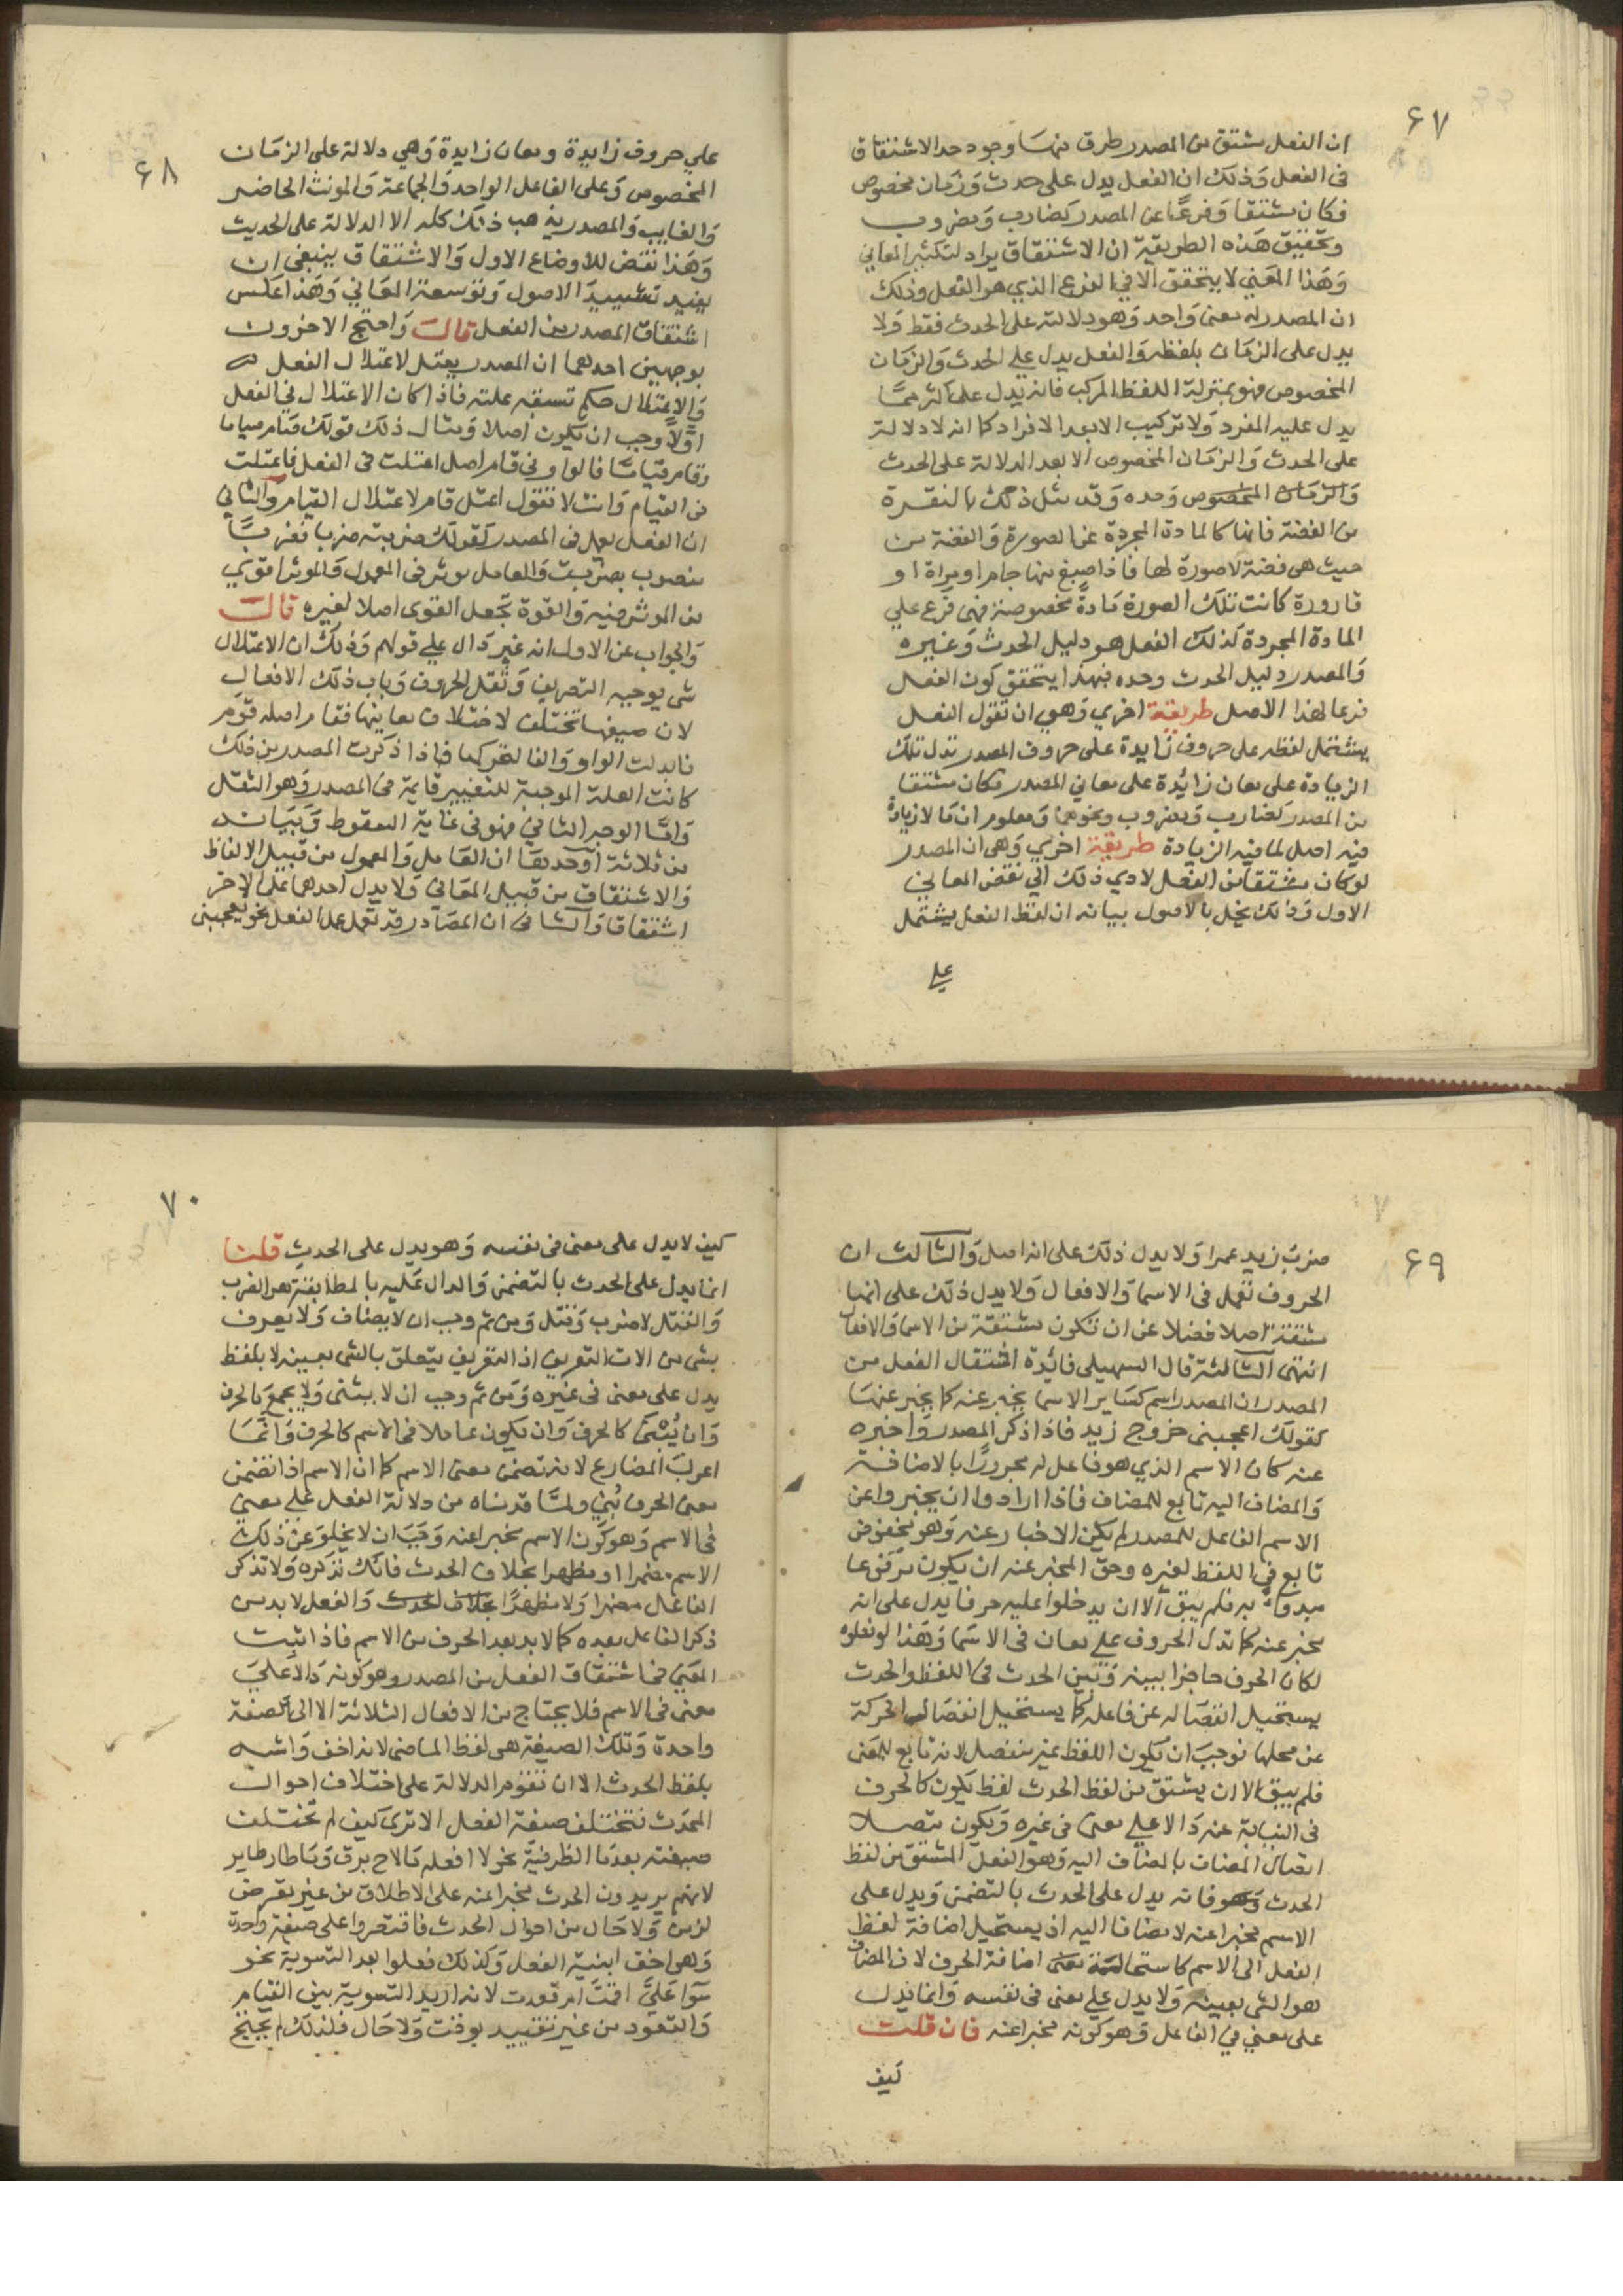 ٦٧
ان الفعل مشتق من المصدر طرق منها وجود حد الاشتقاق
فى الفعل وذلك ان الفعل يدل على حدث وزمان مخصوص
فكان مشتقا وفرعا عن المصدر كضارب ومضروب
وتحقيق هذه الطريقة ان الاشتقاق يراد لتكثير المعاني
وهذا المعني لا يتحقق الا في الفرع الذي هو الفعل وذلك
ان المصدر له معنى واحد وهو دلالته على الحدث فقط ولا
يدل على الزمان بلفظه والفعل يدل علي الحدث والزمان
المخصوص فهو بمنزلة اللفظ المركب فانه يدل على اكثر مما
يدل عليه المفرد ولا تركيب الا بعد الافراد كما انه لا دلالة
على الحدث والزمان المخصوص الا بعد الدلالة على الحدث
والزمان المخصوص وحده وقد مثل ذلك بالنقرة
من الفضة فانها كالمادة المجردة عن الصورة والفضة من
حيث هى فضة لا صورة لها فاذا صيغ منها جام او مراة او
قارورة كانت تلك الصورة مادة مخصوصة فهى فرع علي
المادة المجردة كذلك الفعل هو دليل الحدث وغيره
والمصدر دليل الحدث وحده فبهذا يتحقق كون الفعل
فرعا لهذا الاصل طريقة اخري وهي ان تقول الفعل
يشتمل لفظه على حروف زايدة على حروف المصدر تدل تلك
الزيادة على معان زائدة على معاني المصدر فكان مشتقا
من المصدر كضارب ومضروب ونحوهما ومعلوم ان ما لا زيادة
فيه اصل لما فيه الزيادة طريقة اخري وهى ان المصدر
لو كان مشتقا من الفعل لادي ذلك الي نقض المعاني
الاول وذلك يخل بالاصول بيانه ان لفظ الفعل يشتمل
علي
٦٨
علي حروف زايدة ومعان زايدة وهي دلالته على الزمان
المخصوص وعلى الفاعل الواحد والجماعة والمونث الحاضر
والغايب والمصدر يذهب ذلك كله الا الدلالة على الحديث
وهذا نقض للاوضاع الاول والاشتقاق ينبغي ان
يفيد تشييد الاصول وتوسعة المعاني وهذا عكس
اشتقاق المصدر من الفعل قال واحتج الاخرون
بوجهين احدهما ان المصدر يعتل لاعتلال الفعل
والاعتلال حكم تسبقه علته فاذا كان الاعتلال في الفعل
اولا وجب ان يكون اصلا ومثال ذلك قولك صام صياما
وقام قياما قالوا وفى قام اصل اعتلت فى الفعل فاعتلت
فى القيام وانت لا تقول اعتل قام لاعتلال القيام والثاني
ان الفعل يعمل فى المصدر كقولك ضربته ضربا فضربا
منصوب بضربت والعامل موثر في المعمول والموثر اقوي
من الموثر فيه والقوة تجعل القوى اصلا لغيره قال
والجواب عن الاول انه غير دال علي قولهم وذلك ان الاعتلال
شى يوجبه التصريف وثقل الحروف وباب ذلك الافعال
لان صيغها تختلف لاختلاف معانيها فقام اصله قوم
فابدلت الواو والفا لتحركها فاذا ذكرت المصدر من ذلك
كانت العلة الموجبة للتغيير قايمة فى المصدر وهو الثقل
واما الوجه الثاني فهو فى غاية السقوط وبيانه
من ثلاثة اوجه احدها ان العامل والمعمول من قبيل الالفاظ
والاشتقاق من قبيل المعاني ولا يدل احدهما على الاخر
اشتقاقا والثانى ان المصادر قد تعمل عمل الفعل نحو يعجبنى
٦٩
ضرب زيد عمرا ولا يدل ذلك على انه اصل والثالث ان
الحروف تعمل فى الاسما والافعال ولا يدل ذلك على انها
مشتقة اصلا فضلا عن ان تكون مشتقة من الاسما والافعال
انتهى الثالثة قال السهيلى فائدة اشتقاق الفعل من
المصدر ان المصدر اسم كساير الاسما يخبر عنه كما يخبر عنها
كقولك اعجبنى خروج زيد فاذا ذكر المصدر واخبره
عنه كان الاسم الذي هو فاعل له مجرورا بالاضافة
والمضاف اليه تابع للمضاف فاذا ارادوا ان يخبروا عن
الاسم الفاعل للمصدر لم يكن الاخبار عنه وهو مخفوض
تابع في اللفظ لغيره وحق المخبر عنه ان يكون مرفوعا
مبدوا به فلم يبق الا ان يدخلوا عليه حرفا يدل على انه
مخبر عنه كما تدل الحروف علي معان فى الاسما وهذا لو فعلوه
لكان الحرف حاجزا بينه وبين الحدث فى اللفظ والحدث
يستحيل انفصاله عن فاعله كما يستحيل انفصال الحركة
عن محلها فوجب ان يكون اللفظ غير منفصل لانه تابع للمعنى
فلم يبق الا ان يشتق من لفظ الحدث لفظ يكون كالحرف
فى النيابة عنه دالا علي معنى فى غيره ويكون متصلا
اتصال المضاف بالمضاف اليه وهو الفعل المشتق من لفظ
الحدث وهو فانه يدل على الحدث بالتضمن ويدل على
الاسم مخبرا عنه لا مضافا اليه اذ يستحيل اضافة لفظ
الفعل الى الاسم كاستحالة معنى اضافة الحرف لان المضاف
هو الشى بعينه ولا يدل علي معنى فى نفسه وانما يدل
على معني في الفاعل وهو كونه مخبرا عنه فان قلت
كيف
٧٠
كيف لا يدل على معنى فى نفسه وهو يدل على الحدث قلنا
انما يدل على الحدث بالتضمن والدال عليه بالمطابقة هو الضرب
والقتل لا ضرب وقتل ومن ثم وجب ان لا يضاف ولا يعرف
بشى من الات التعريف اذ التعريف يتعلق بالشى بعينه لا بلفظ
يدل على معنى فى غيره ومن ثم وجب ان لا يثنى ولا يجمع كالحرف
وان يبنى كالحرف وان يكون عاملا فى الاسم كالحرف وانما
اعرب المضارع لانه تضمن معنى الاسم كما ان الاسم اذا تضمن
معنى الحرف بني ولما قدمناه من دلالة الفعل علي معنى
فى الاسم وهو كون الاسم مخبرا عنه وجب ان لا يخلو عن ذلك
الاسم مضمرا او مظهرا بخلاف الحدث فانك تذكره ولا تذكر
الفاعل مضمرا ولا مظهرا بخلاف الحدث والفعل لا بد من
ذكر الفاعل بعده كما لا بد بعد الحرف من الاسم فاذا ثبت
المعنى فى اشتقاق الفعل من المصدر وهو كونه دالا علي
معنى فى الاسم فلا يحتاج من الافعال الثلاثة الا الى صيغة
واحدة وتلك الصيغة هى لفظ الماضى لانه اخف واشبه
بلفظ الحدث الا ان تقوم الدلالة على اختلاف احوال
المحدث فتختلف صيغة الفعل الا ترى كيف لم تختلف
صيغته بعد ما الظرفية نحو لا افعله ما لاح برق وما طار طاير
لانهم يريدون الحدث مخبرا عنه على الاطلاق من غير تعرض
لزمن ولا حال من احوال الحدث فاقتصروا على صيغة واحدة
وهى اخف ابنية الفعل وكذلك فعلوا بعد التسوية نحو
سوا علي اقمت ام قعدت لانه اريد التسوية بين القيام
والقعود من غير تقييد بوقت ولا حال فلذلك لم يحتج